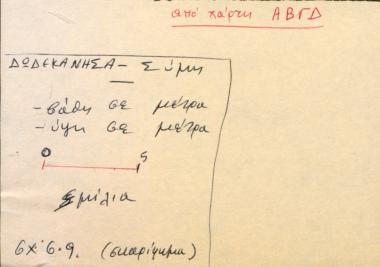 από χάρτη ΑΒΓΔ
ΔΩΔΕΚΑΝΗΣΑ - Σύμη
- βάθη σε μέτρα
- ύψη σε μέτρα
0 5
μίλια
σχ. 6.9. (σκαρίφημα)